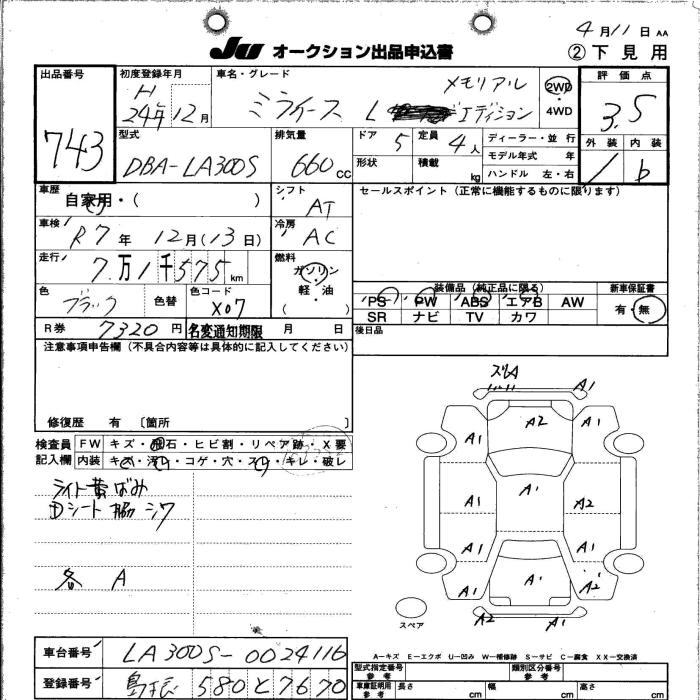 4月11日 AA
JU オークション出品申込書 ②下見用
出品番号 743
初度登録年月 H 24年12月
車名・グレード ミライース L メモリアル エディション
2WD
4WD
評価点 3.5
外装 内装
b
型式 DBA-LA300S
排気量 660cc
ドア 5
定員 4人
形状
積載 kg
ディーラー・並行
モデル年式 年
ハンドル 左・右
車歴 自家用・( )
シフト AT
セールスポイント(正常に機能するものに限ります)
車検 R7年12月(13日)
冷房 AC
走行 7万1千575km
燃料 ガソリン
軽・油
( )
色 ブラック
色替
色コード X07
装備品(純正品に限る)
PS PW ABS エアB AW
SR ナビ TV カワ
新車保証書
有・無
R券 7320円
名変通知期限 月 日
後日品
注意事項申告欄(不具合内容等は具体的に記入してください)
修復歴 有 〔箇所 〕
検査員
記入欄
FW キズ・飛石・ヒビ割・リペア跡・X要
内装 キズ・汚レ・コゲ・穴・スレ・キレ・破レ
ライト黄ばみ
Dシート脇シワ
各 A
ズレA
A1
A1 A2 A1
A1 A1 A2
A1 A1
A1 A1 A2
A2 A1
スペア
A-キズ E-エクボ U-凹み W-補修跡 S-サビ C-腐食 XX-交換済
車台番号 LA300S-0024116
登録番号 580と7670
型式指定番号
参考
類別区分番号
参考
車庫証明用
参考
長さ cm
幅 cm
高さ cm